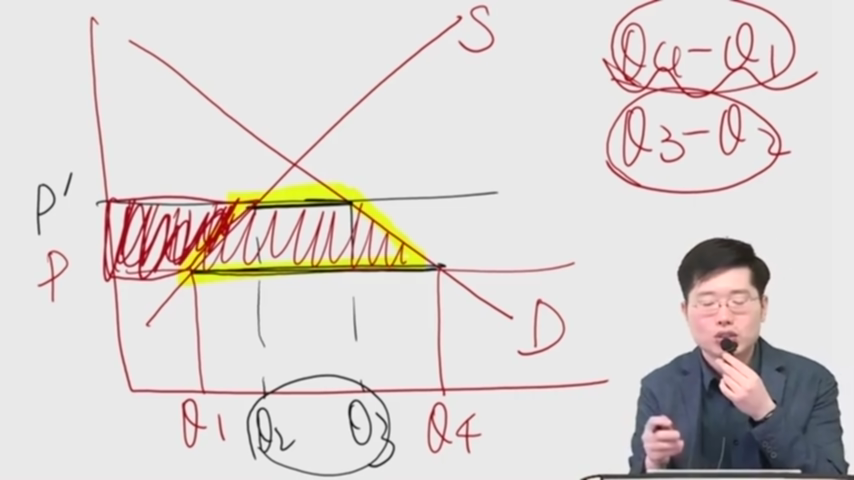 S
Q4-Q1
Q3-Q2
P'
P
D
Q1 Q2 Q3 Q4